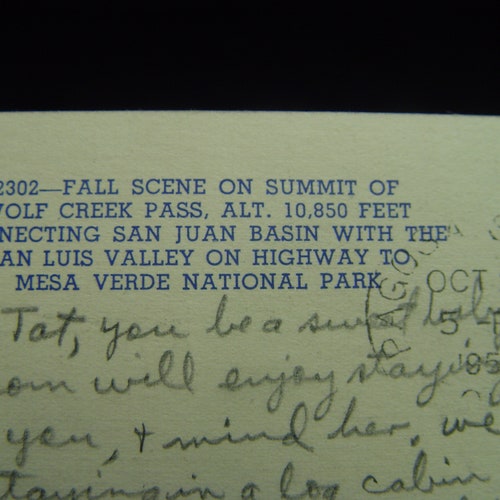 2302—FALL SCENE ON SUMMIT OF
WOLF CREEK PASS, ALT. 10,850 FEET
NNECTING SAN JUAN BASIN WITH THE
AN LUIS VALLEY ON HIGHWAY TO
MESA VERDE NATIONAL PARK
PAGO
OCT
5
195
Tat, you be a sweet
om will enjoy staying
you, + mind her, we
staying in a log cabin